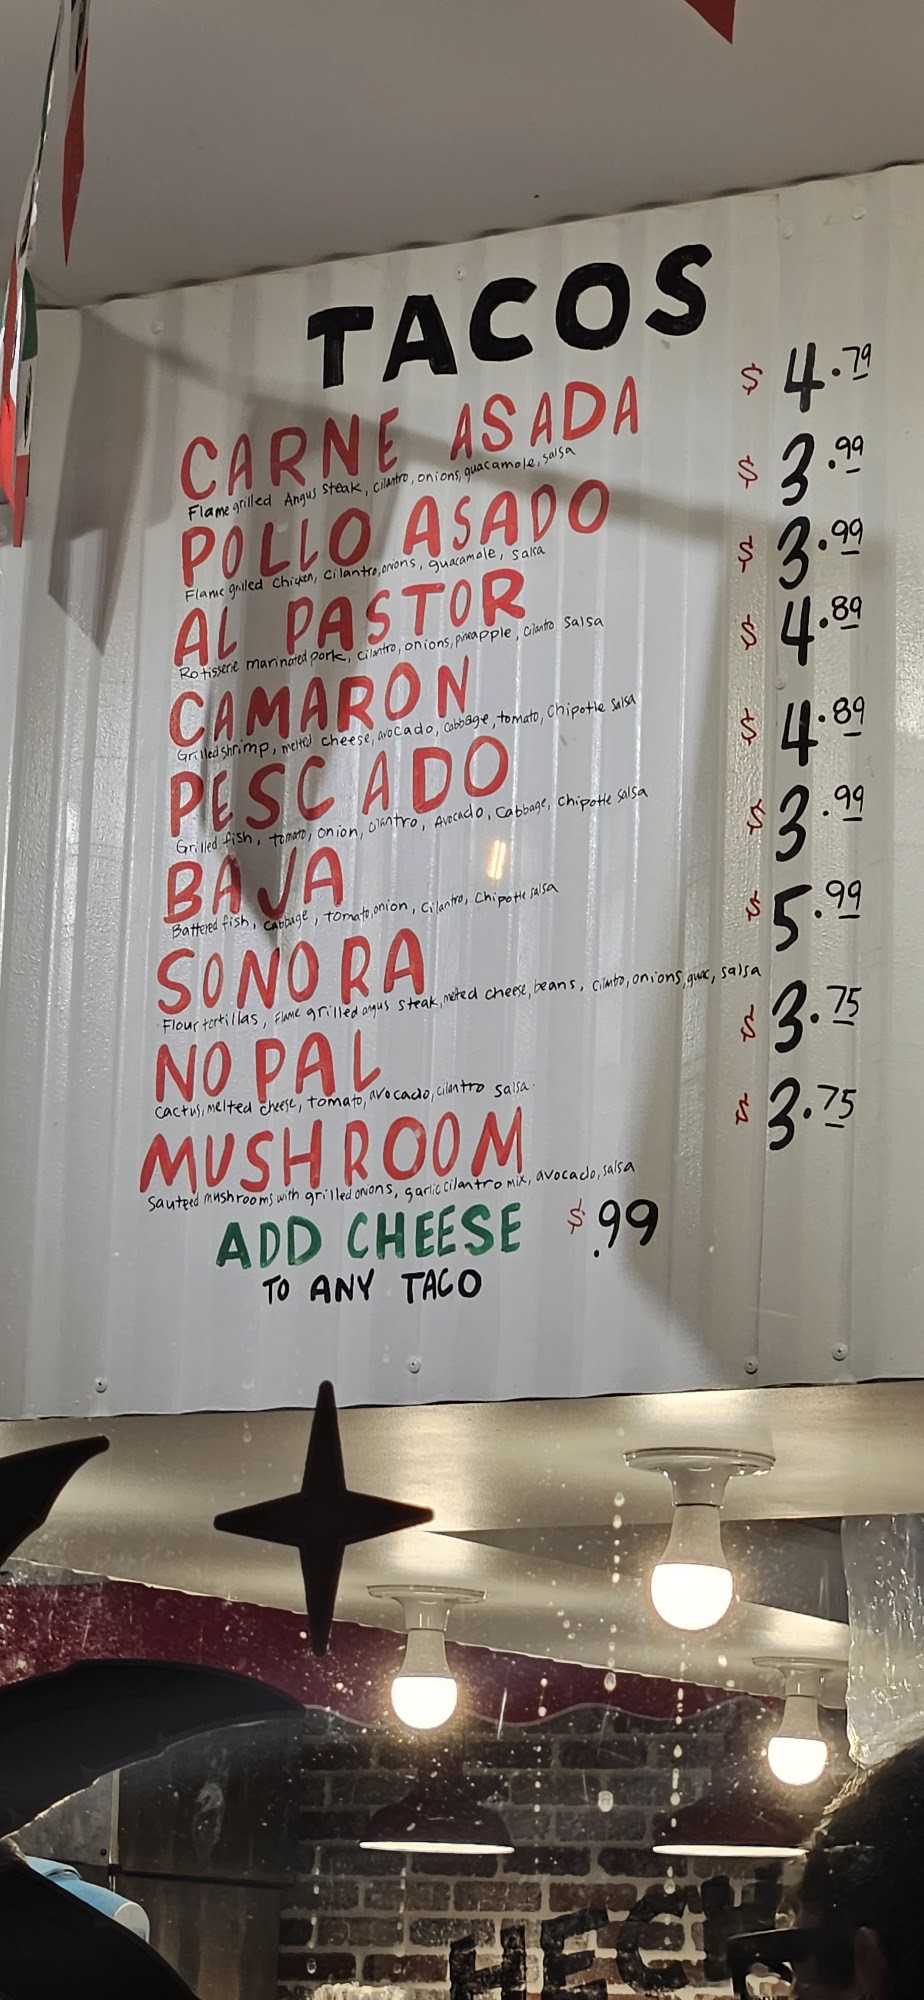 TACOS
CARNE ASADA $4.79
Flame grilled Angus steak, cilantro, onions, guacamole, salsa
POLLO ASADO $3.99
Flame grilled Chicken, cilantro, onions, guacamole, salsa
AL PASTOR $3.99
Rotisserie marinated pork, cilantro, onions, pineapple, cilantro salsa
CAMARON $4.89
Grilled shrimp, melted cheese, avocado, cabbage, tomato, chipotle salsa
PESCADO $4.89
Grilled fish, tomato, onion, cilantro, Avocado, Cabbage, Chipotle salsa
BAJA $3.99
Battered fish, cabbage, tomato, onion, cilantro, Chipotle salsa
SONORA $5.99
Flour tortillas, flame grilled angus steak, melted cheese, beans, cilantro, onions, guac, salsa
NOPAL $3.75
Cactus, melted cheese, tomato, avocado, cilantro salsa.
MUSHROOM $3.75
Sauteed mushrooms with grilled onions, garlic cilantro mix, avocado, salsa
ADD CHEESE $.99
TO ANY TACO
HECH